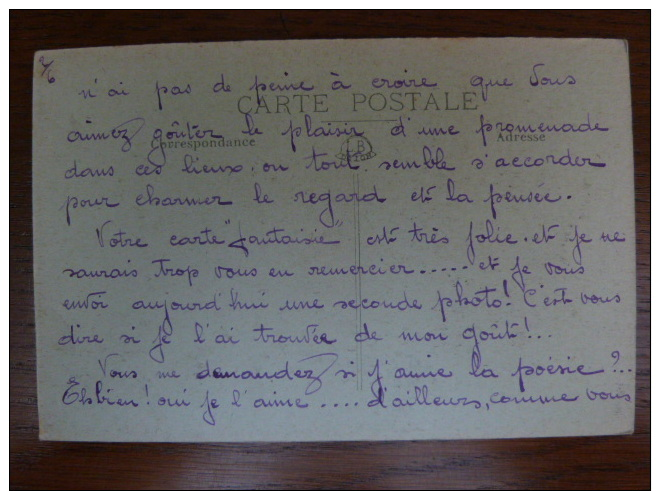 2/
n'ai pas de peine à croire que Vous
CARTE POSTALE
aimez goûter le plaisir d'une promenade
Correspondance
Adresse
dans ces lieux, ou tout semble s'accorder
pour charmer le regard et la pensée.
Votre carte "fantaisie" est très jolie. et je ne
saurais trop vous en remercier..... et je vous
envoi aujourd'hui une seconde photo! C'est vous
dire si je l'ai trouvée de mon goût!..
Vous me demandez si j'aime la poésie?..
Eh bien! oui je l'aime.... d'ailleurs, comme vous